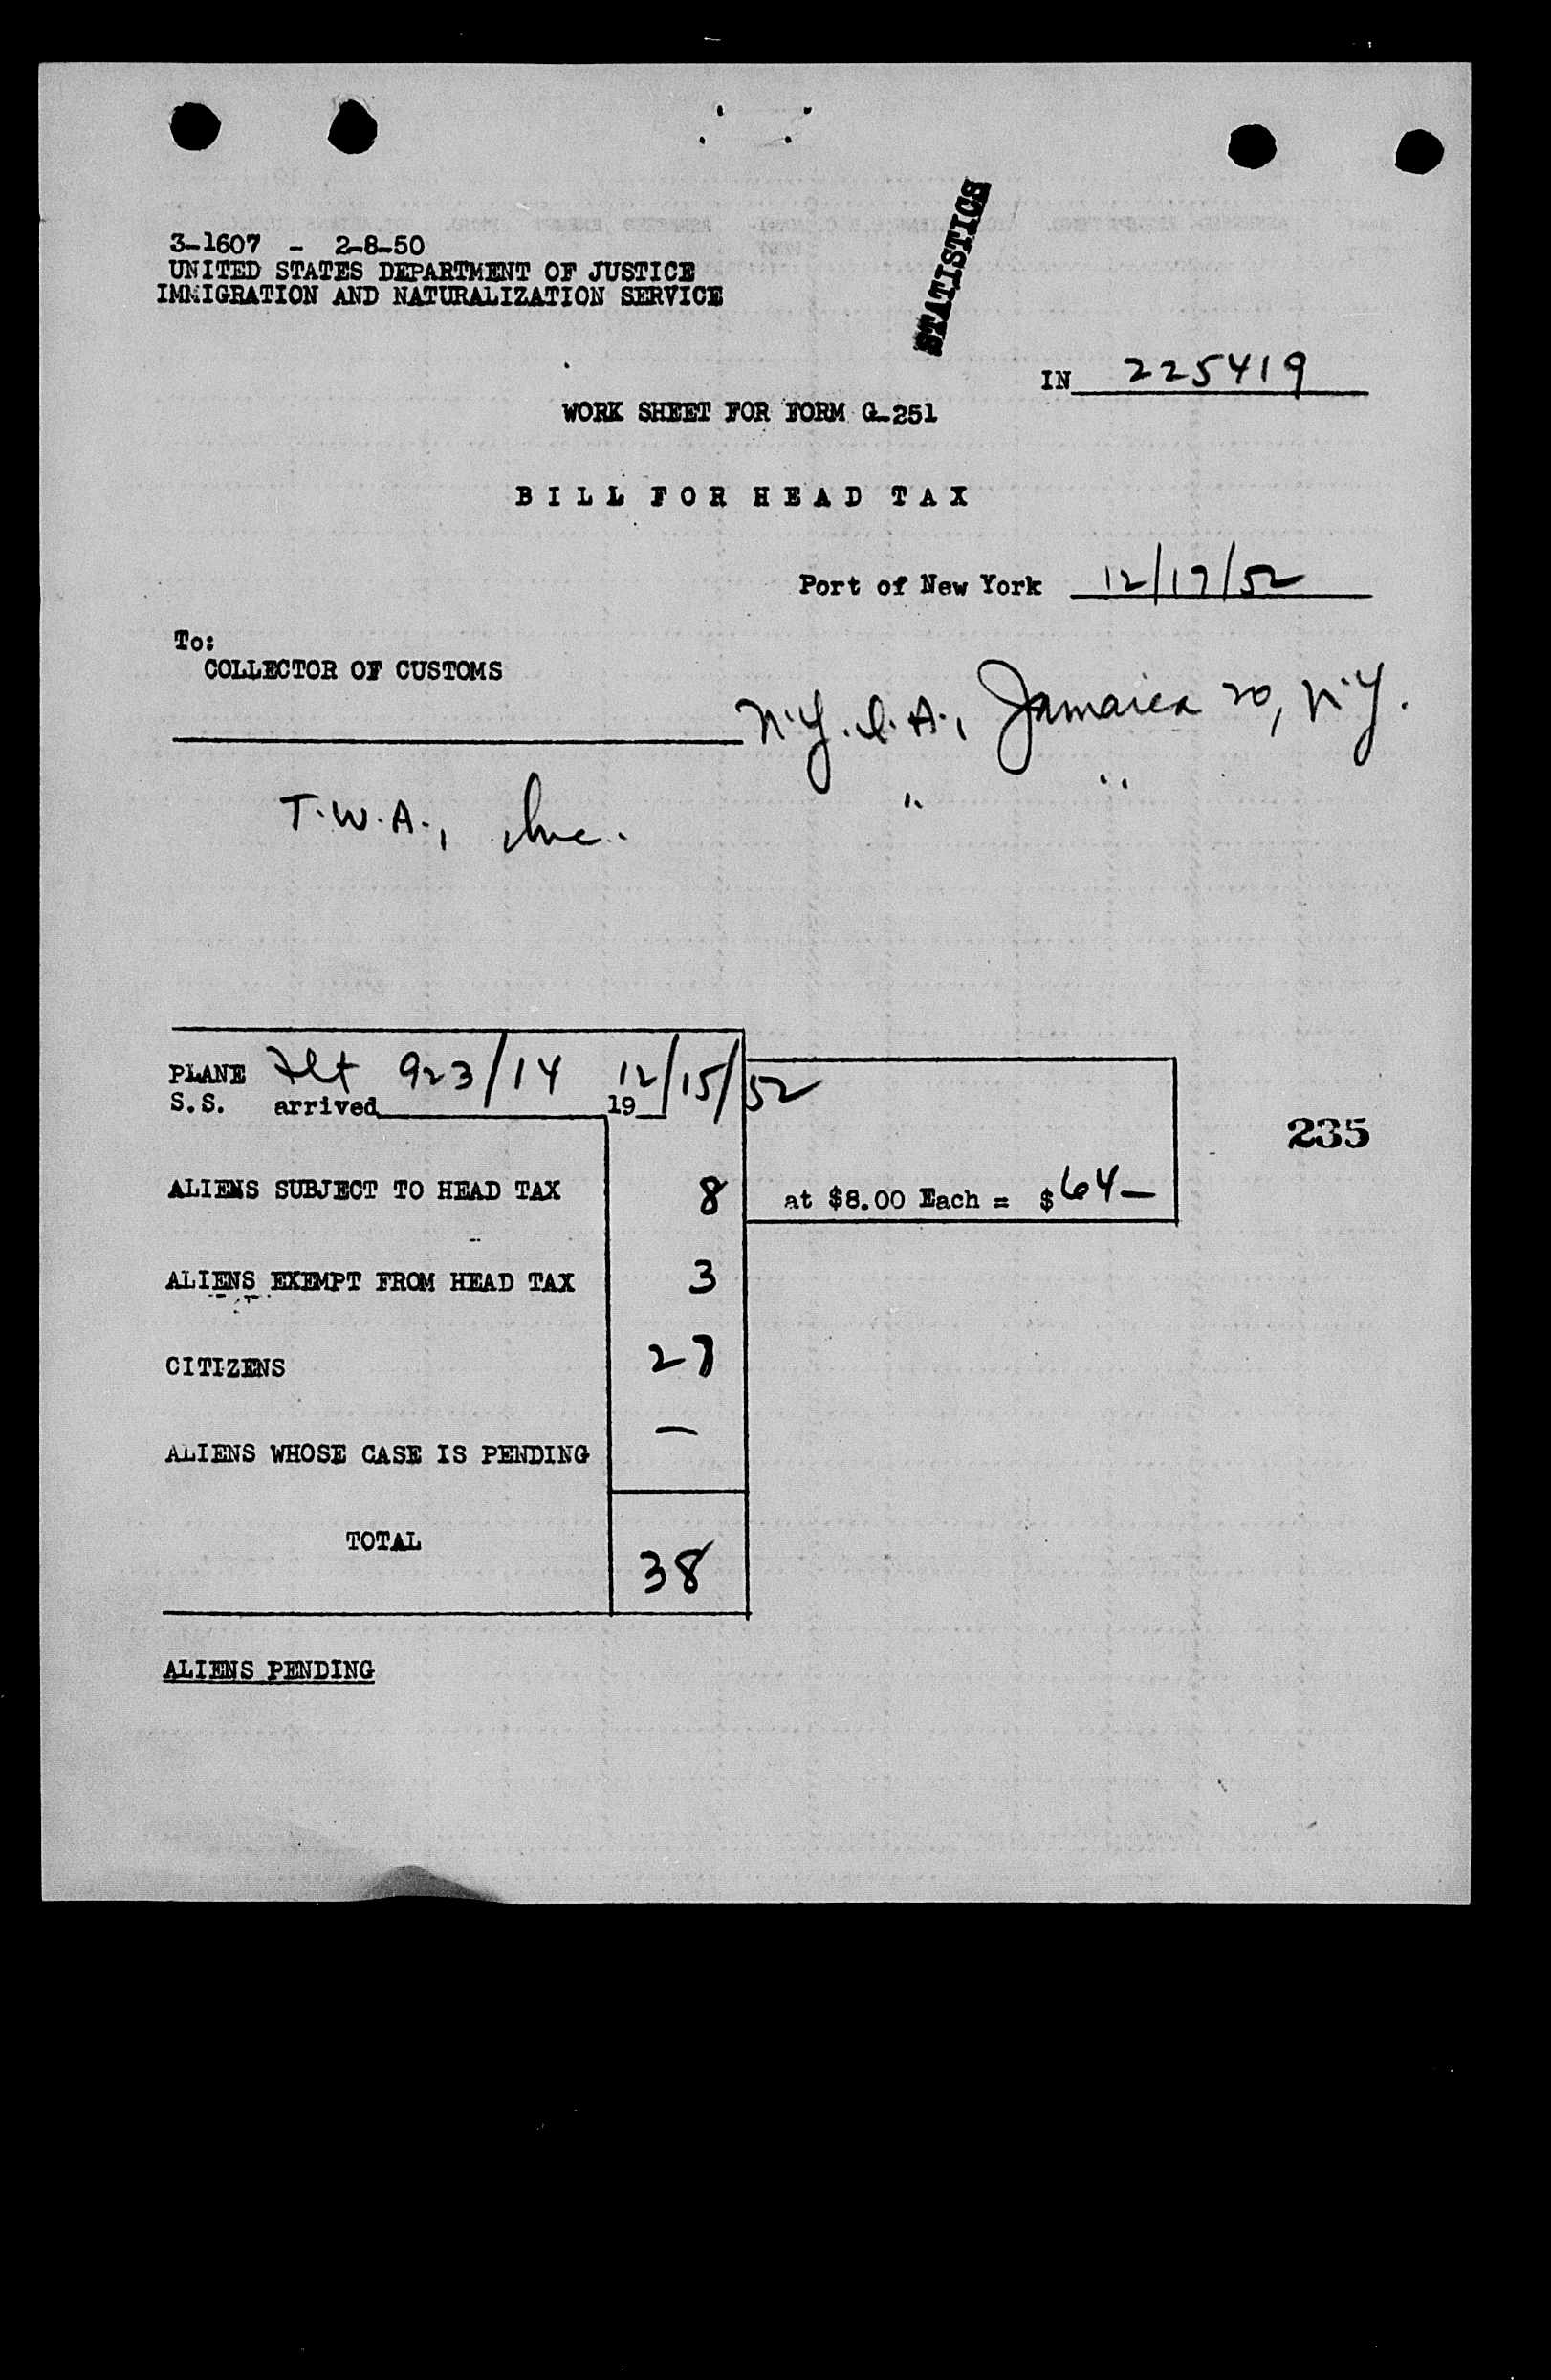 STATISTICS
3-1607 - 2-8-50
UNITED STATES DEPARTMENT OF JUSTICE
IMMIGRATION AND NATURALIZATION SERVICE
IN 225419
WORK SHEET FOR FORM G-251
BILL FOR HEAD TAX
Port of New York 12/17/52
To:
COLLECTOR OF CUSTOMS
N.Y.I.A., Jamaica 20, N.Y.
T.W.A., Inc. " "
PLANE Flt 923/14 12/15/52
S.S. arrived 19
235
ALIENS SUBJECT TO HEAD TAX 8 at $8.00 Each = $64—
ALIENS EXEMPT FROM HEAD TAX 3
CITIZENS 27
ALIENS WHOSE CASE IS PENDING —
TOTAL 38
ALIENS PENDING